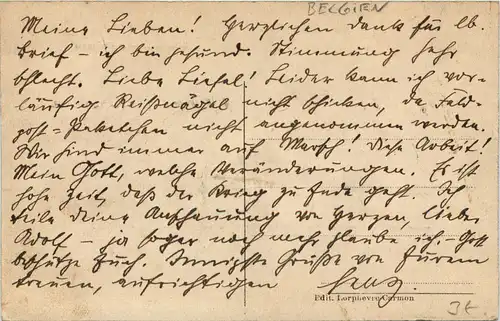 BELGIEN
Meine Lieben! Herzlichen Dank für lb.
Brief – ich bin gesund. Stimmung sehr
schlecht. Liebe Liesel! Leider kann ich vor-
läufig Reißnägel nicht schicken, da Feld-
post-Paketchen nicht angenommen werden.
Wir sind immer auf Marsch! Diese Arbeit!
Mein Gott, welche Veränderungen. Es ist
hohe Zeit, daß der Krieg zu Ende geht. Ich
teile deine Anschauung von Herzen, lieber
Adolf – ja sogar noch mehr glaube ich. Gott
beschütze Euch. Innigste Grüße von Eurem
treuen, aufrichtigen
Edit. Lorphèvre-Carmon